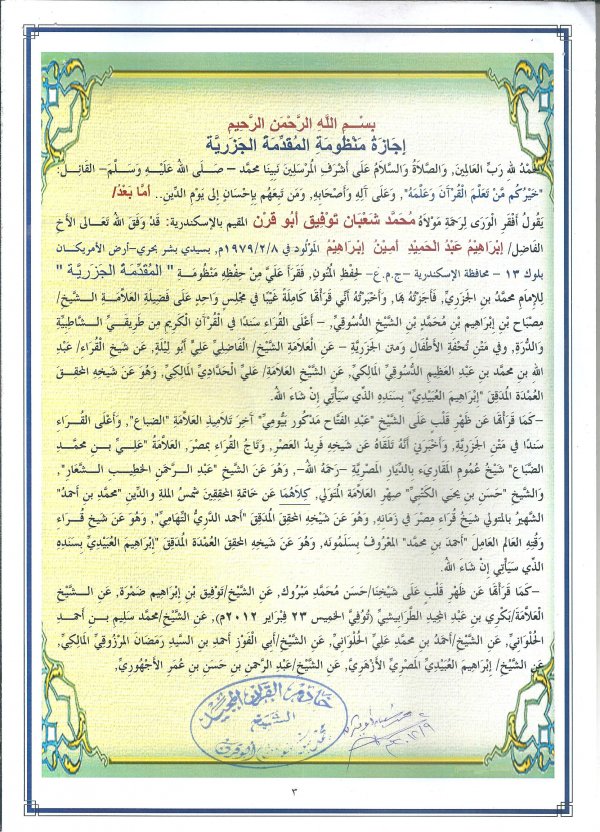 بِسْمِ اللَّهِ الرَّحْمَنِ الرَّحِيمِ
إِجَازَةُ مَنْظُومَةِ المُقَدِّمَةِ الجَزَرِيَّة
الحَمْدُ لله رَبِّ العَالمِينَ, وَالصَّلاَةُ وَالسَّلاَمُ عَلَى أَشْرَفِ المُرْسَلِينَ نَبِينَا محمَّد – صَلى اللهُ عَلَيْهِ وَسَلَّمَ– القَائِل:
"خَيْرُكُم مَّنْ تَعَلَّمَ القُرْآنَ وَعَلَّمَهُ", وَعَلَى آلِهِ وَأَصْحَابِهِ, وَمَن تَبِعَهُم بِإِحْسَانٍ إِلى يَوْمِ الدِّينِ.. أمَّا بَعْدُ/
يَقُولُ أَفْقَرِ الْوَرَى لِرَحْمَةِ مَوْلاَهُ مُحَمَّد شَعْبَان تَوْفِيق أَبُو قَرْن المقيم بالإسكندرية: قَدْ وَفَقَ اللهُ تَعَالى الأَخِ
الفَاضِلِ/ إِبْرَاهِيمُ عَبْدُ الْحَمِيدِ أَمِيْنُ إِبْرَاهِيمُ المَوْلُود في ١٩٧٩/٢/٨م, بِسيدي بشر بحري–أرض الأمريكان
بلوك ١٣ – محافظة الإسكندرية –ج.م.ع– لحفظِ المُتُونِ, فقَرَأَ عَلَيَّ مِنْ حِفْظِهِ مَنْظُومَةِ " المُقَدِّمَة الجَزَرِيَّة "
لِلإمامِ محمَّدُ بنِ الجَزَرِيِّ, فَأَجَزْتُهُ بهَا, وَأَخْبَرْتُهُ أَنِّي قَرَأْتُهَا كَامِلَةً غَيْبًا في مجْلِسٍ وَاحِدٍ عَلَى فَضِيلَةِ العَلاَّمَةِ الشَّيْخِ/
مِصْبَاح بْنِ إِبْرَاهِيم بْنِ مُحَمَّدٍ بْنِ الشَّيْخِ الدُّسُوقِيِّ, – أَعْلَى القُرَاءِ سَنَدًا في الْقُرْآنِ الْكَرِيمِ مِن طَرِيقَيِّ الشَّاطِبِيَّةِ
وَالدُّرَةِ, وَفي مَتْنِ تُحْفَةِ الأَطْفَالِ وَمتنِ الجَزَرِيَّةِ – عَنِ العَلاَّمَةِ الشَّيْخُ/ الْفَاضِلِيِّ عَلِيٍّ أَبُو لَيْلَةٍ, عَن شَيخِ القُرَاءِ/ عَبْدِ
اللهِ بن محمد بن عَبدِ العَظِيمِ الدُّسُوقِيِّ المالكِيِّ, عَنِ الشَّيْخِ العَلاَّمَةِ/ عَلَيِّ الْحَدَّادِيِّ المالِكِيِّ, وَهُوَ عَنْ شَيخِهِ المحَقِقِ
العُمْدَة المُدَقِقِ "إِبْرَاهِيمَ العُبَيْدِيِّ" بِسَنَدِهِ الَّذِي سَيَأْتِي إِنْ شَاءَ الله.
–كَمَا قَرَأْتُهَا عَن ظَهْرِ قَلْبٍ عَلَى الشَّيْخِ "عَبد الفَتَّاح مَدْكُور بَيُّومِيّ" آخِرَ تَلاَمِيذِ العَلاَّمَةِ "الضباع", وَأَعْلَى القُرَاءِ
سَنَدًا في مَتْنِ الجَزَرِيَّةِ, وَأَخْبَرَنِي أَنَّهُ تَلَقَّاهُ عَن شَيخِهِ فَرِيدُ العَصْرِ, وَتَاجُ القُرَاءِ بمصْرَ, العَلاَّمَةُ "عَلِيِّ بنِ محمَّدِ
الضبَّاع" شَيْخُ عُمُومِ المَقَارِيءِ بالدِّيَارِ المِصْرِيَّةِ –رَحِمَهُ اللهُ–, وَهُوَ عَنِ الشَّيْخِ "عَبْدِ الرَّحْمَنِ الخَطِيبِ الشَّعَّارِ",
وَالشَّيْخِ "حَسَن بن يحيَى الكُتْبِيِّ" صِهْرِ العَلاَّمَةِ المُتَوَلِّي, كِلاَهُمَا عَن خَاتِمَةِ المحقِقِينَ شَمْسُ المِلَةِ والدِّينِ "محمَّد بن أَحمدَ"
الشَّهِيرُ بالمتَولِّي شَيخُ قُرَاءِ مِصْرَ في زَمَانِهِ, وَهُوَ عَن شَيْخِهِ المحَققِ المُدَقِقِ "أَحمد الدَّرِيُّ التِّهَامِيِّ", وَهُوَ عَن شَيخِ قُرَاءِ
وَقْتِهِ العَالمِ العَامِلِ "أَحمدَ بن محمَّدٍ" المَعْرُوفُ بِسَلَمُونَه, وَهُوَ عَن شَيخِهِ المحَققِ العُمْدَةِ المُدَقِقِ "إِبْرَاهِيمَ العُبَيْدِي بسَنَدِهِ
الَّذِي سَيَأْتِي إِنْ شَاءَ الله.
–كَمَا قَرَأْتُهَا عَن ظَهْرِ قَلْبٍ عَلَى شَيْخُنَا/حَسَن مُحَمَّد مَبْرُوك, عَنِ الشَّيْخ/تَوْفِيق بْنِ إِبْرَاهِيم ضَمْرَة, عَنِ الشَّيْخِ
العَلاَّمَة/بَكْرِي بن عَبْدِ المجِيد الطَّرَابِيشِي (تُوُفِّيَ الخميس ٢٣ فِبْرَاير ٢٠١٢م), عَنِ الشَّيْخِ/محمَّد سَلِيم بن أَحمد
الحُلْوَانِيِّ, عَنِ الشَّيْخِ/أَحمدُ بن محمد عَلِيِّ الحُلْوَانِيِّ, عَنِ الشَّيْخِ/أَبي الْفَوْزِ أَحمدِ بنِ السَّيِّدِ رَمَضَانَ المَرْزُوقِيِّ المالِكِيِّ,
عَنِ الشَّيْخِ/ إِبْرَاهِيمَ العُبَيْدِيِّ المِصْرِيِّ الأَزْهَرِيِّ, عَنِ الشَّيْخِ/عَبْدِ الرَّحمن بن حَسَن بنِ عُمَرَ الأَجْهُورِيِّ,
خادم القرآن الجيد
الشيخ
٣